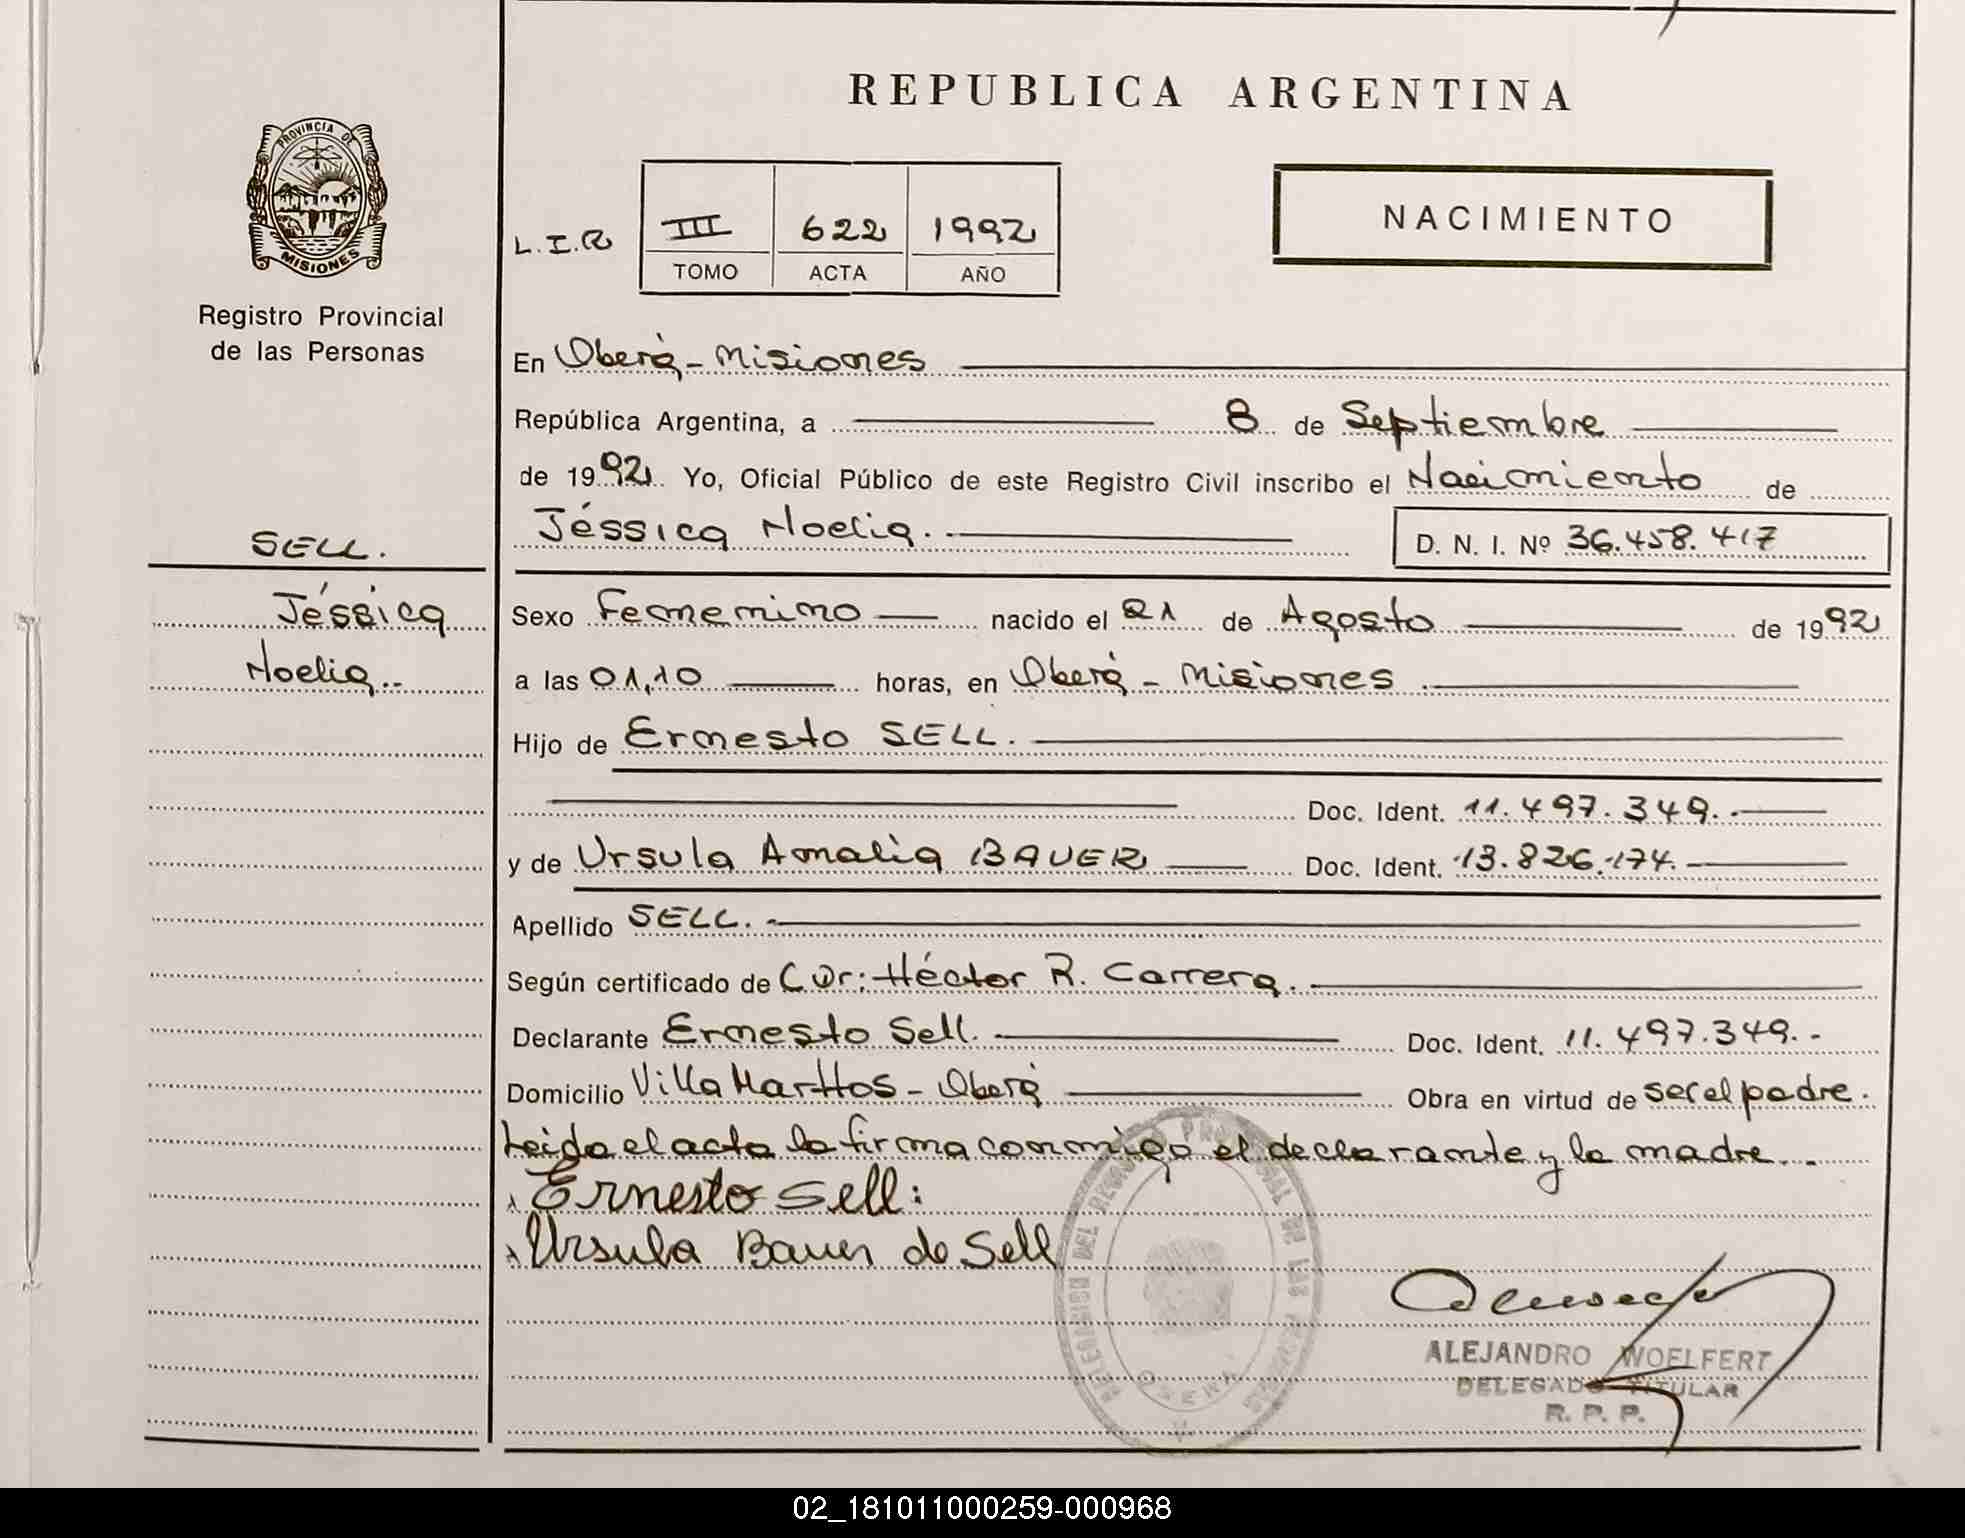 REPUBLICA ARGENTINA
PROVINCIA DE
MISIONES
Registro Provincial
de las Personas
L.I.R III 622 1992
TOMO ACTA AÑO
NACIMIENTO
En Oberá - Misiones
República Argentina, a 8 de Septiembre
de 1992 Yo, Oficial Público de este Registro Civil inscribo el Nacimiento de
Jéssica Noelia.
D. N. I. Nº 36.458.417
SELL.
Jéssica
Noelia..
Sexo Femenino nacido el 21 de Agosto de 1992
a las 01,10 horas, en Oberá - Misiones
Hijo de Ernesto SELL.
Doc. Ident. 11.497.349.
y de Ursula Amalia BAUER Doc. Ident. 13.826.174.
Apellido SELL.
Según certificado de Héctor R. Carrera.
Declarante Ernesto Sell. Doc. Ident. 11.497.349.-
Domicilio Villa Marttos - Oberá Obra en virtud de ser el padre.
Leida el acta la firma conmigo el declarante y la madre..
Ernesto Sell:
Ursula Bauer de Sell
DELEGACION DEL REGISTRO PROVINCIAL DE LAS PERSONAS
OBERA
ALEJANDRO WOELFERT
DELEGADO TITULAR
R. P. P.
02_181011000259-000968